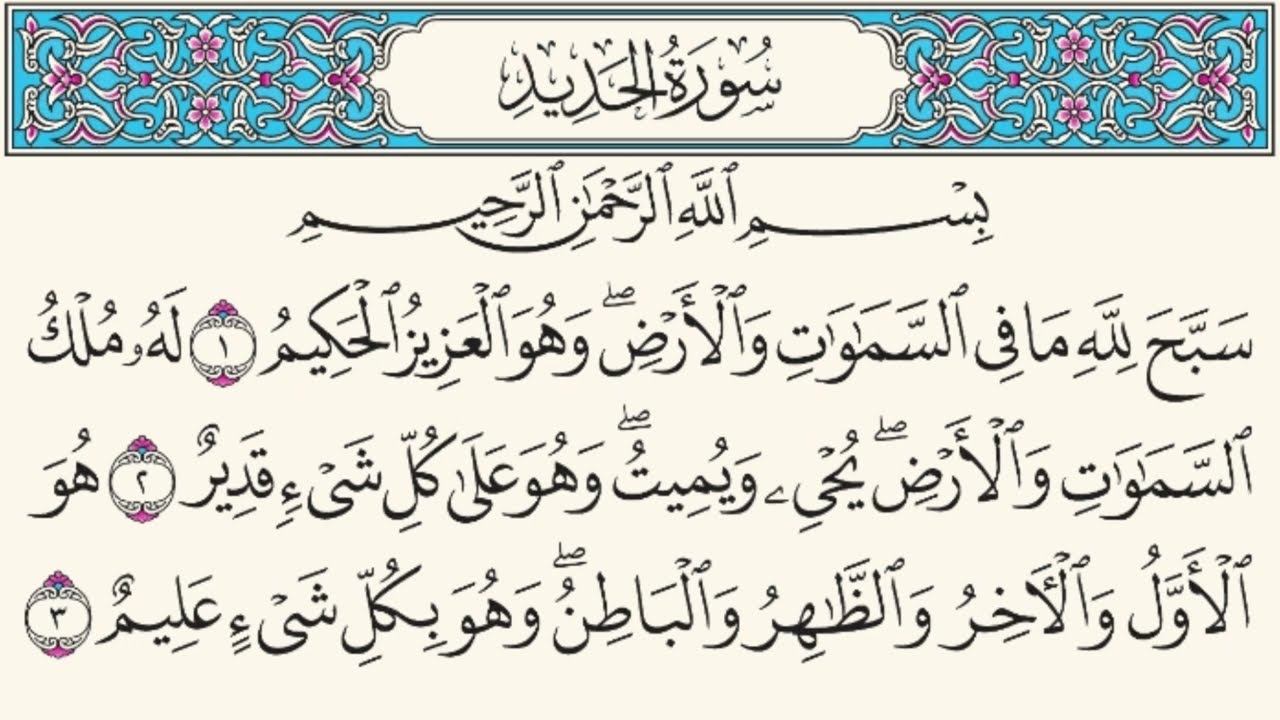 سُورَةُ الحَدِيدِ
بِسْمِ ٱللَّهِ ٱلرَّحْمَٰنِ ٱلرَّحِيمِ
سَبَّحَ لِلَّهِ مَا فِى ٱلسَّمَٰوَٰتِ وَٱلْأَرْضِ ۖ وَهُوَ ٱلْعَزِيزُ ٱلْحَكِيمُ ١ لَهُۥ مُلْكُ
ٱلسَّمَٰوَٰتِ وَٱلْأَرْضِ ۖ يُحْىِۦ وَيُمِيتُ ۖ وَهُوَ عَلَىٰ كُلِّ شَىْءٍ قَدِيرٌ ٢ هُوَ
ٱلْأَوَّلُ وَٱلْـَٔاخِرُ وَٱلظَّٰهِرُ وَٱلْبَاطِنُ ۖ وَهُوَ بِكُلِّ شَىْءٍ عَلِيمٌ ٣